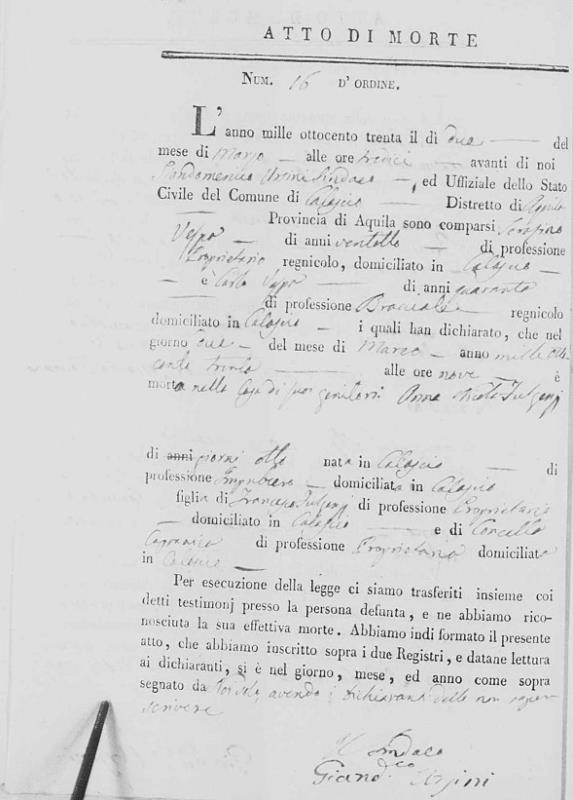 ATTO DI MORTE
NUM. 16 D' ORDINE.
L' anno mille ottocento trenta il di due del
mese di Marzo alle ore tredici avanti di noi
Giandomenico Sindaco, ed Uffiziale dello Stato
Civile del Comune di Calascio Distretto di Aquila
Provincia di Aquila sono comparsi Serafino
Vespa di anni ventotto di professione
Proprietario regnicolo, domiciliato in Calascio
e Carlo Vespa di anni quaranta
di professione Bracciale regnicolo
domiciliato in Calascio i quali han dichiarato, che nel
giorno due del mese di Marzo anno mille otto
cento trenta alle ore nove è
morta nella Casa di suoi genitori Anna
di anni giorni otto nata in Calascio di
professione domiciliata in Calascio
figlia di Francesco di professione Proprietario
domiciliato in Calascio e di
di professione Proprietaria domiciliata
in Calascio
Per esecuzione della legge ci siamo trasferiti insieme coi
detti testimonj presso la persona defunta, e ne abbiamo rico-
nosciuta la sua effettiva morte. Abbiamo indi formato il presente
atto, che abbiamo inscritto sopra i due Registri, e datane lettura
ai dichiaranti, si è nel giorno, mese, ed anno come sopra
segnato da avendo i dichiaranti detto non saper
scrivere
Il Sindaco
Giand.co